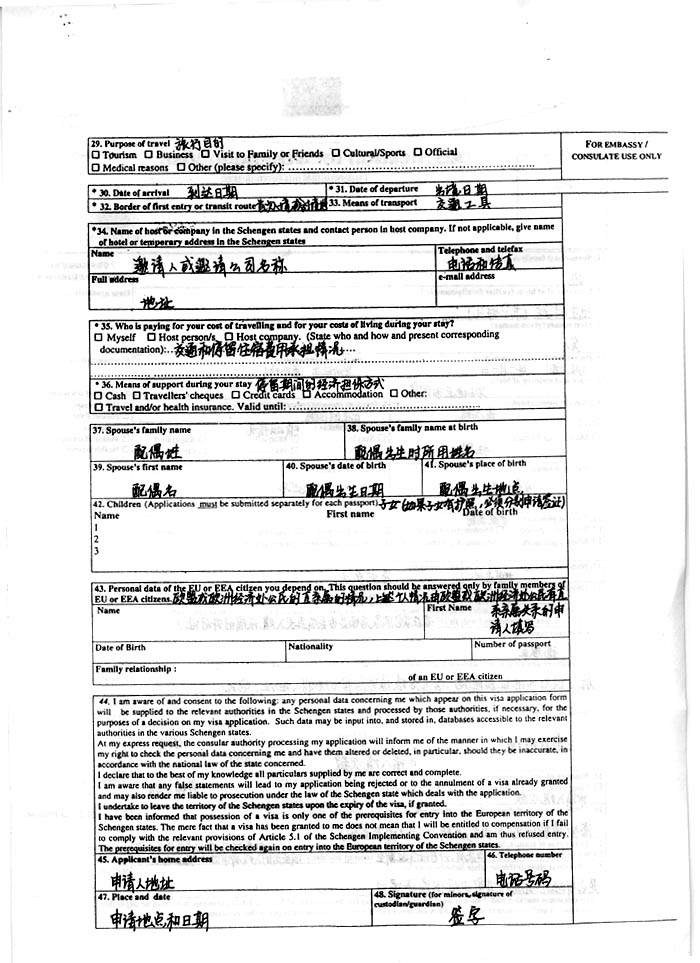 29. Purpose of travel 旅行目的
☐ Tourism ☐ Business ☐ Visit to Family or Friends ☐ Cultural/Sports ☐ Official
☐ Medical reasons ☐ Other (please specify): ........................................
FOR EMBASSY /
CONSULATE USE ONLY
* 30. Date of arrival 到达日期
* 31. Date of departure 出境日期
* 32. Border of first entry or transit route
33. Means of transport 交通工具
*34. Name of host or company in the Schengen states and contact person in host company. If not applicable, give name
of hotel or temporary address in the Schengen states
Name
邀请人或邀请公司名称
Telephone and telefax
电话和传真
Full address
地址
e-mail address
* 35. Who is paying for your cost of travelling and for your costs of living during your stay?
☐ Myself ☐ Host person/s ☐ Host company. (State who and how and present corresponding
documentation):..交通和停留住宿费用承担情况....
* 36. Means of support during your stay 停留期间的经济担保方式
☐ Cash ☐ Travellers' cheques ☐ Credit cards ☐ Accommodation ☐ Other:
☐ Travel and/or health insurance. Valid until: ........................................
37. Spouse's family name
配偶姓
38. Spouse's family name at birth
配偶出生时所用姓名
39. Spouse's first name
配偶名
40. Spouse's date of birth
配偶出生日期
41. Spouse's place of birth
配偶出生地点
42. Children (Applications must be submitted separately for each passport) 子女(如果子女有护照,必须分别申请签证)
Name First name Date of birth
1
2
3
43. Personal data of the EU or EEA citizen you depend on. This question should be answered only by family members of
EU or EEA citizens. 欧盟或欧洲经济处公民的直亲属的情况,上述个人情况由欧盟或欧洲经济处公民有直
Name
First Name 系亲属关系的申
请人填写
Date of Birth
Nationality
Number of passport
Family relationship :
of an EU or EEA citizen
44. I am aware of and consent to the following: any personal data concerning me which appear on this visa application form
will be supplied to the relevant authorities in the Schengen states and processed by those authorities, if necessary, for the
purposes of a decision on my visa application. Such data may be input into, and stored in, databases accessible to the relevant
authorities in the various Schengen states.
At my express request, the consular authority processing my application will inform me of the manner in which I may exercise
my right to check the personal data concerning me and have them altered or deleted, in particular, should they be inaccurate, in
accordance with the national law of the state concerned.
I declare that to the best of my knowledge all particulars supplied by me are correct and complete.
I am aware that any false statements will lead to my application being rejected or to the annulment of a visa already granted
and may also render me liable to prosecution under the law of the Schengen state which deals with the application.
I undertake to leave the territory of the Schengen states upon the expiry of the visa, if granted.
I have been informed that possession of a visa is only one of the prerequisites for entry into the European territory of the
Schengen states. The mere fact that a visa has been granted to me does not mean that I will be entitled to compensation if I fail
to comply with the relevant provisions of Article 5.1 of the Schengen Implementing Convention and am thus refused entry.
The prerequisites for entry will be checked again on entry into the European territory of the Schengen states.
45. Applicant's home address
申请人地址
46. Telephone number
电话号码
47. Place and date
申请地点和日期
48. Signature (for minors, signature of
custodian/guardian)
签字